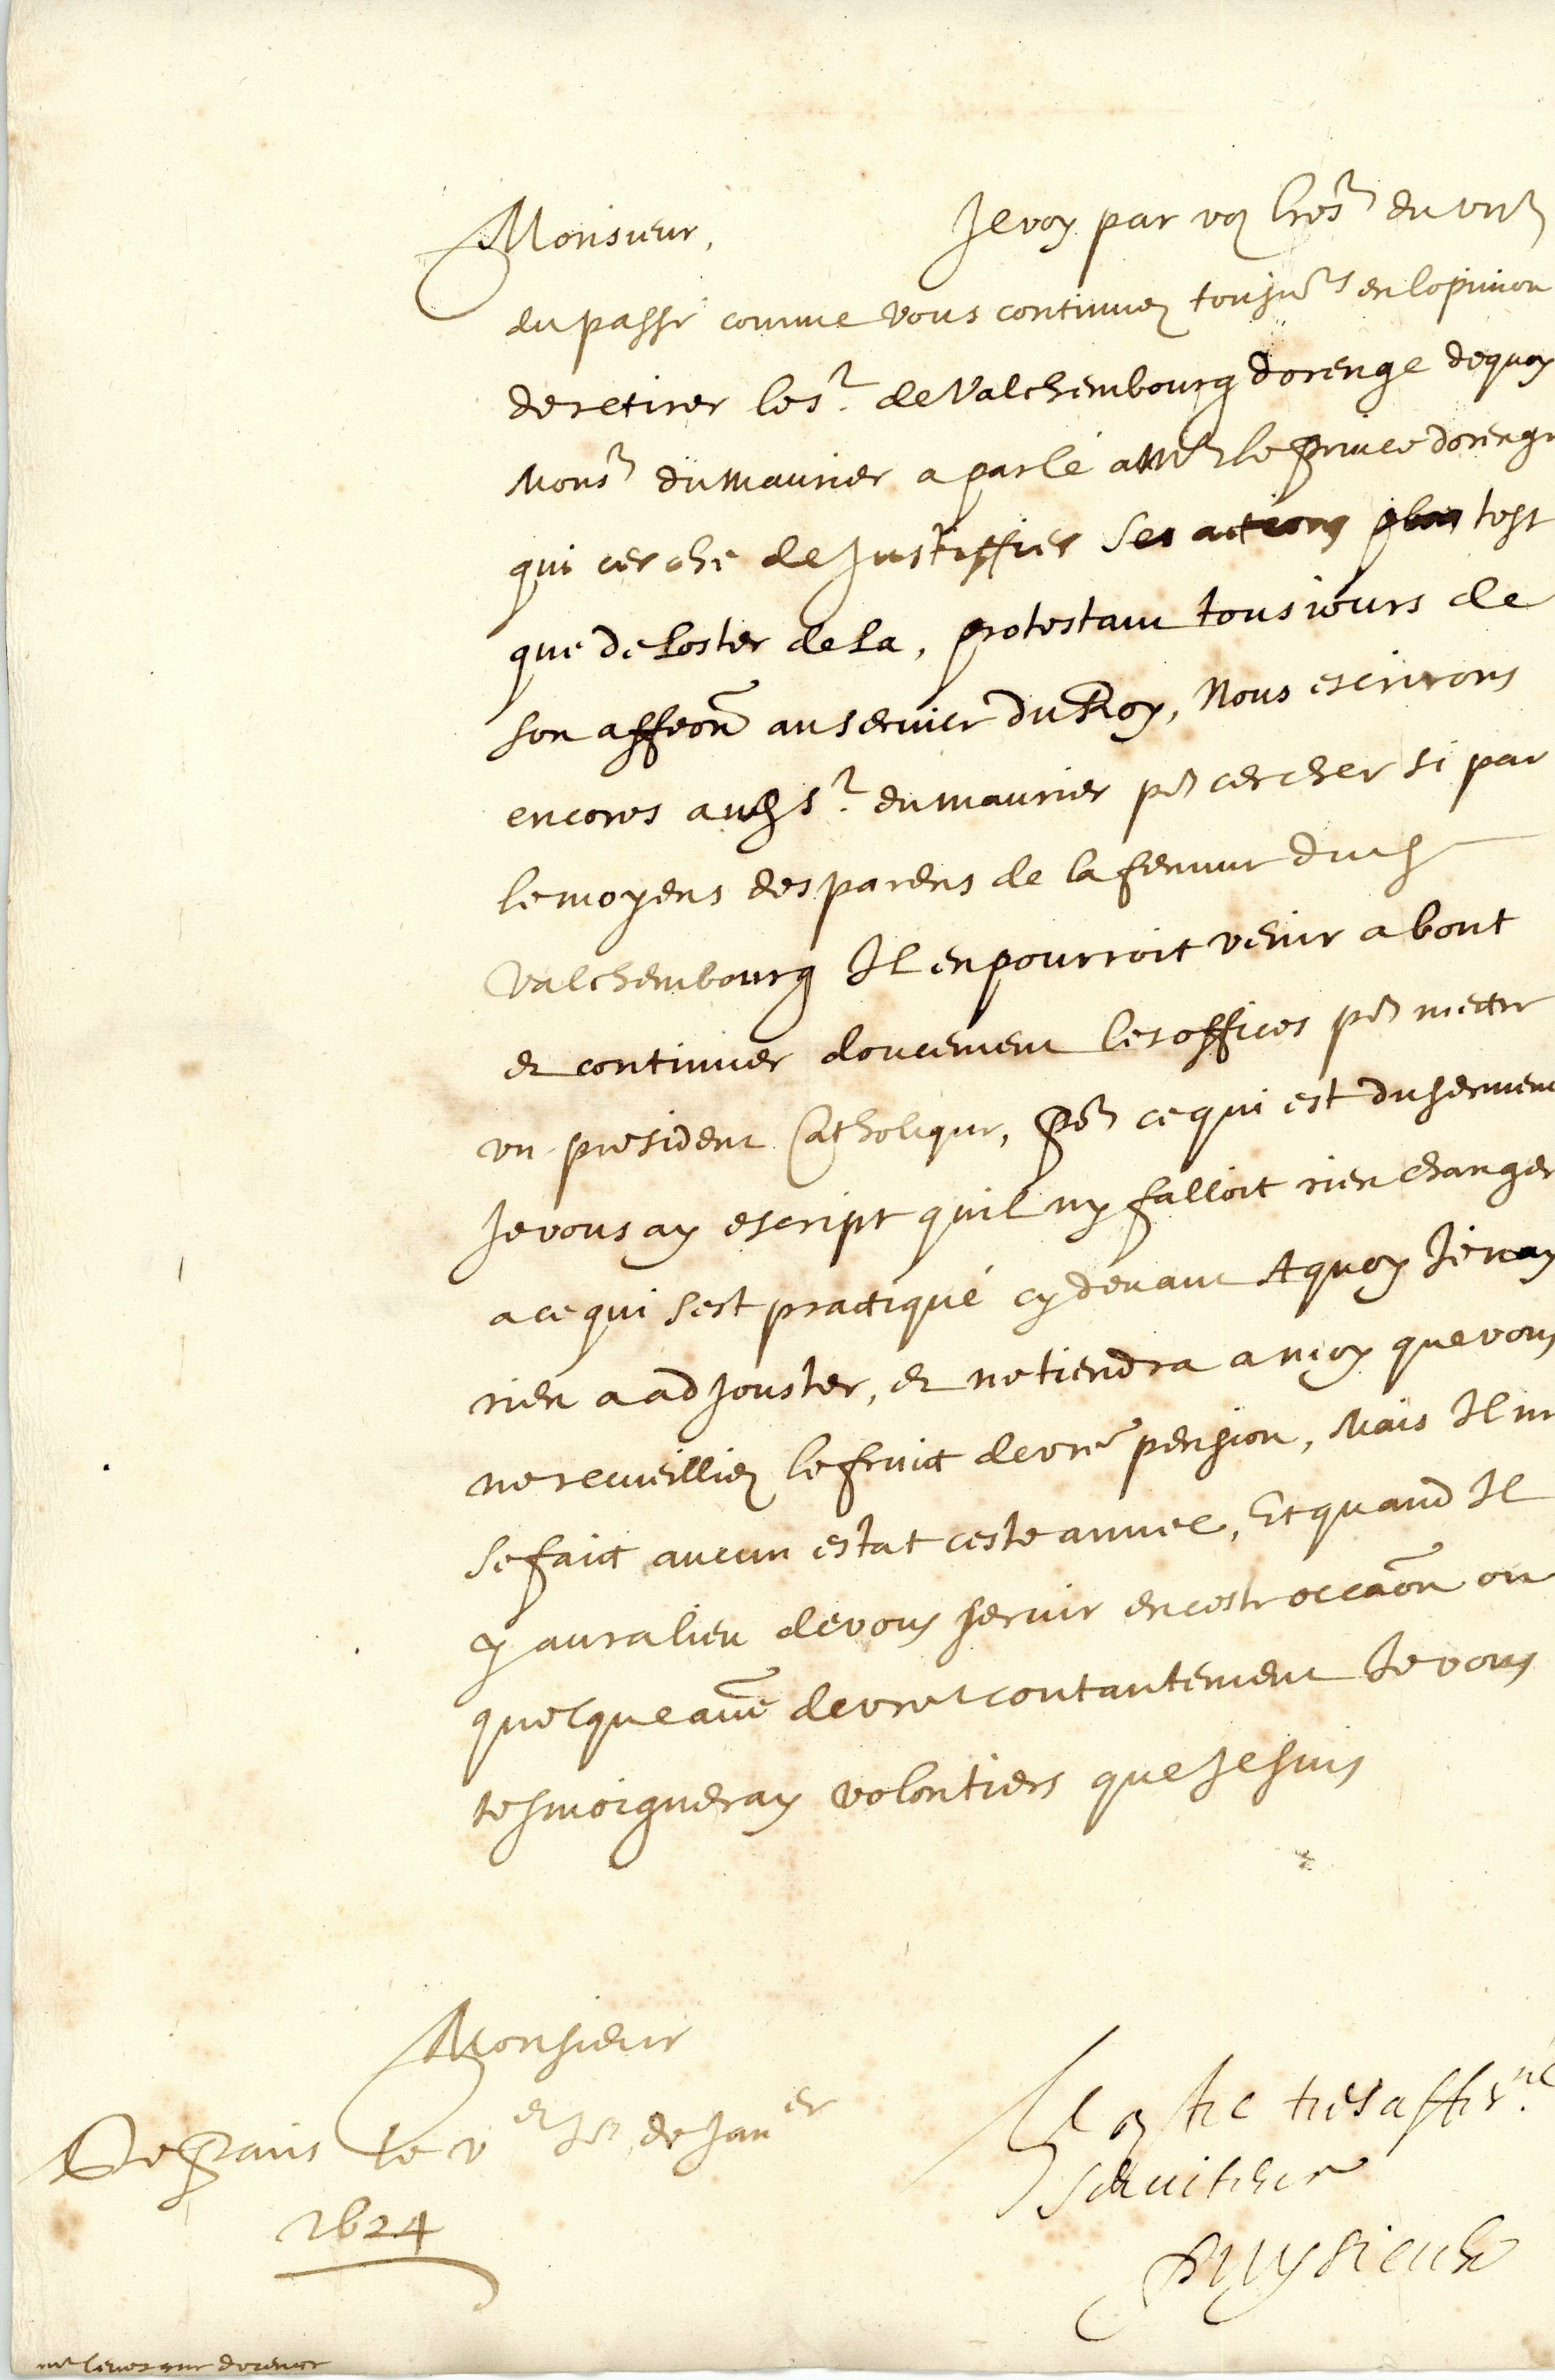 Monsieur, Je voy par voz lres du vnze
du passé comme vous continuez tousjrs en lopinion
de retirer le sr. de Valchembourg dorenge dequoy
Monsr du Maurier a parlé a Mr le Prince dorenge
qui cerche de Justiffier ses actions plus tost
que de loster de la, protestant tousiours de
son affeon au seruice du Roy, Nous escrirons
encores aud sr. du maurier pr cercher si par
le moyens des parens de la femme dud
Valchembourg Il en pourroit venir a bout
et continuer doucement les offices pr mettre
vn president Catholique, Pr ce qui est du serment
Je vous ay escript quil ny falloit rien changer
a ce qui sest prattiqué cy deuant Aquoy Je nay
rien a adjouster, et ne tiendra a moy que vous
ne recueilliez le fruict de vre pension, Mais Il ne
se faict aucun estat ceste annee, Et quand Il
y aura lieu de vous seruir en ceste occaon ou
quelque aue de vre contantement Je vous
tesmoigneray volontiers que Je suis
Monsieur
De Paris le ve Jor de Janer
1624
Vostre tres affnné
seruiteur
Puysieulx
mr leuesque dorenge